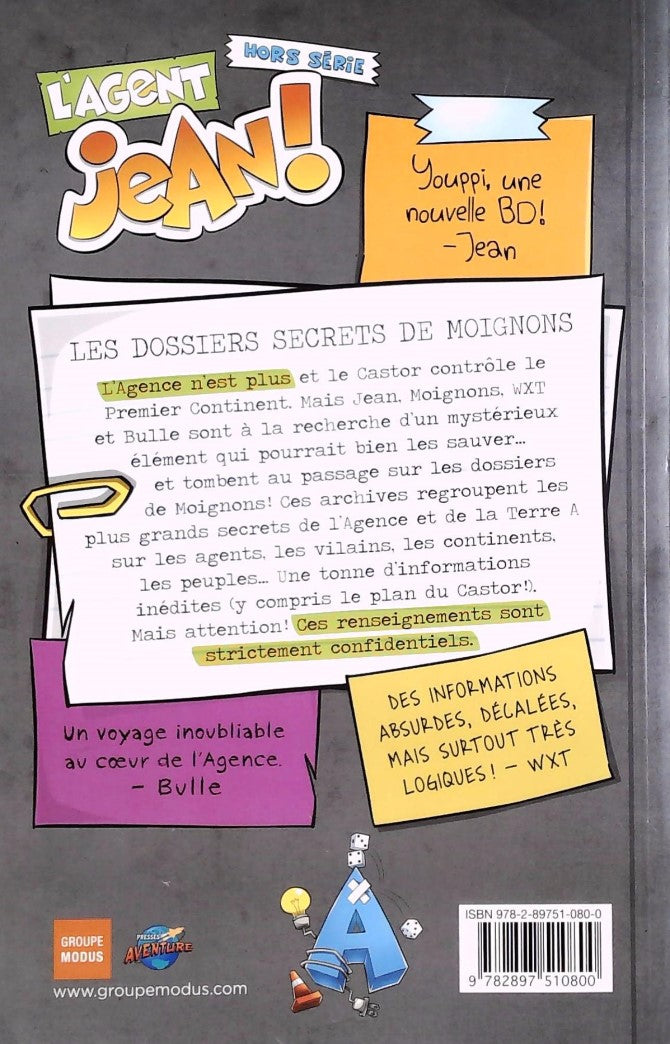 HORS SÉRIE
L'AGENT
JEAN!
Youppi, une
nouvelle BD!
-Jean
LES DOSSIERS SECRETS DE MOIGNONS
L'Agence n'est plus et le Castor contrôle le
Premier Continent. Mais Jean, Moignons, WXT
et Bulle sont à la recherche d'un mystérieux
élément qui pourrait bien les sauver...
et tombent au passage sur les dossiers
de Moignons! Ces archives regroupent les
plus grands secrets de l'Agence et de la Terre A
sur les agents, les vilains, les continents,
les peuples... Une tonne d'informations
inédites (y compris le plan du Castor!).
Mais attention! Ces renseignements sont
strictement confidentiels.
Un voyage inoubliable
au cœur de l'Agence.
- Bulle
DES INFORMATIONS
ABSURDES, DÉCALÉES,
MAIS SURTOUT TRÈS
LOGIQUES! - WXT
A
GROUPE
MODUS
PRESSES
AVENTURE
www.groupemodus.com
ISBN 978-2-89751-080-0
9 782897 510800